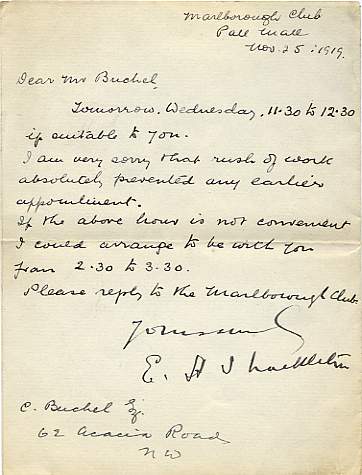 Marlborough Club
Pall Mall
Nov. 25: 1919.
Dear Mr Buchel,
Tomorrow, Wednesday, 11.30 to 12.30
if suitable to you.
I am very sorry that rush of work
absolutely prevented any earlier
appointment.
If the above hour is not convenient
I could arrange to be with you
from 2.30 to 3.30.
Please reply to the Marlborough Club.
Yours
E. H Shackleton
C. Buchel Esq.
62 Acacia Road
NW